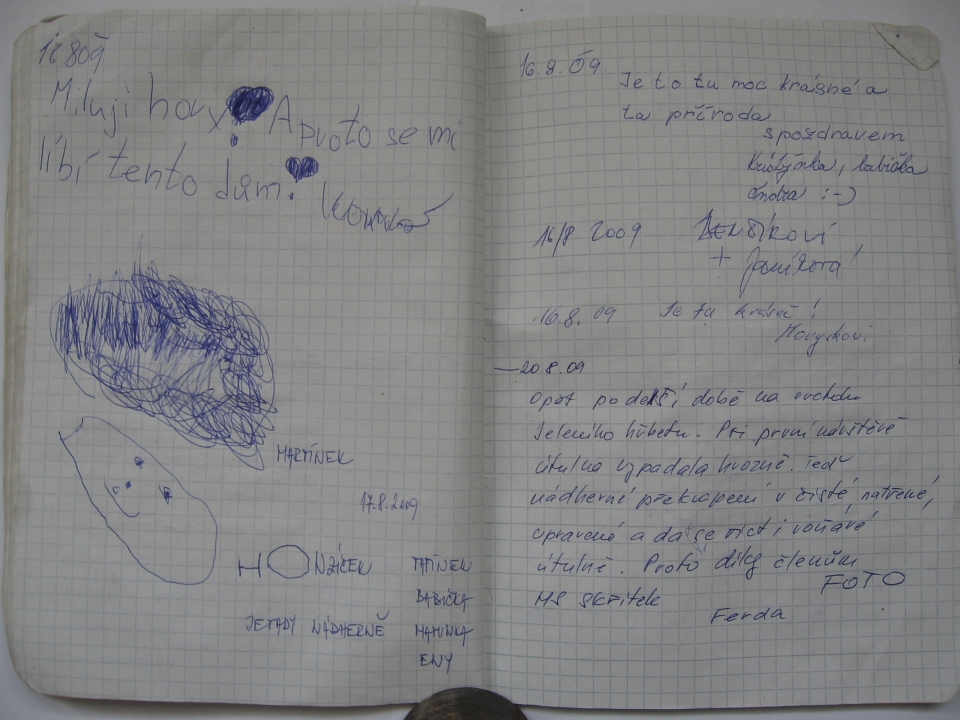 16 8 09
Miluji hory A proto se mi
líbí tento dům.
MARTÍNEK
17.8.2009
HONZÍČEK TATÍNEK
BABIČKA
JE TADY NÁDHERNĚ MAMINKA
ENY
16.8.09
Je to tu moc krásné a
ta příroda
s pozdravem
Kristýnka, babička
Ondra :-)
16/8 2009
+ Janíková
16.8.09 Je tu krásně!
20.8.09
Opět po delší době na vrcholu
Jeleního hřbetu. Při první návštěvě
útulna vypadala hrozně. Teď
nádherné překvapení v čisté, natřené,
upravené a dá se říct i voňavé
útulně. Proto díky členům
MS SKŘÍTEK FOTO
Ferda